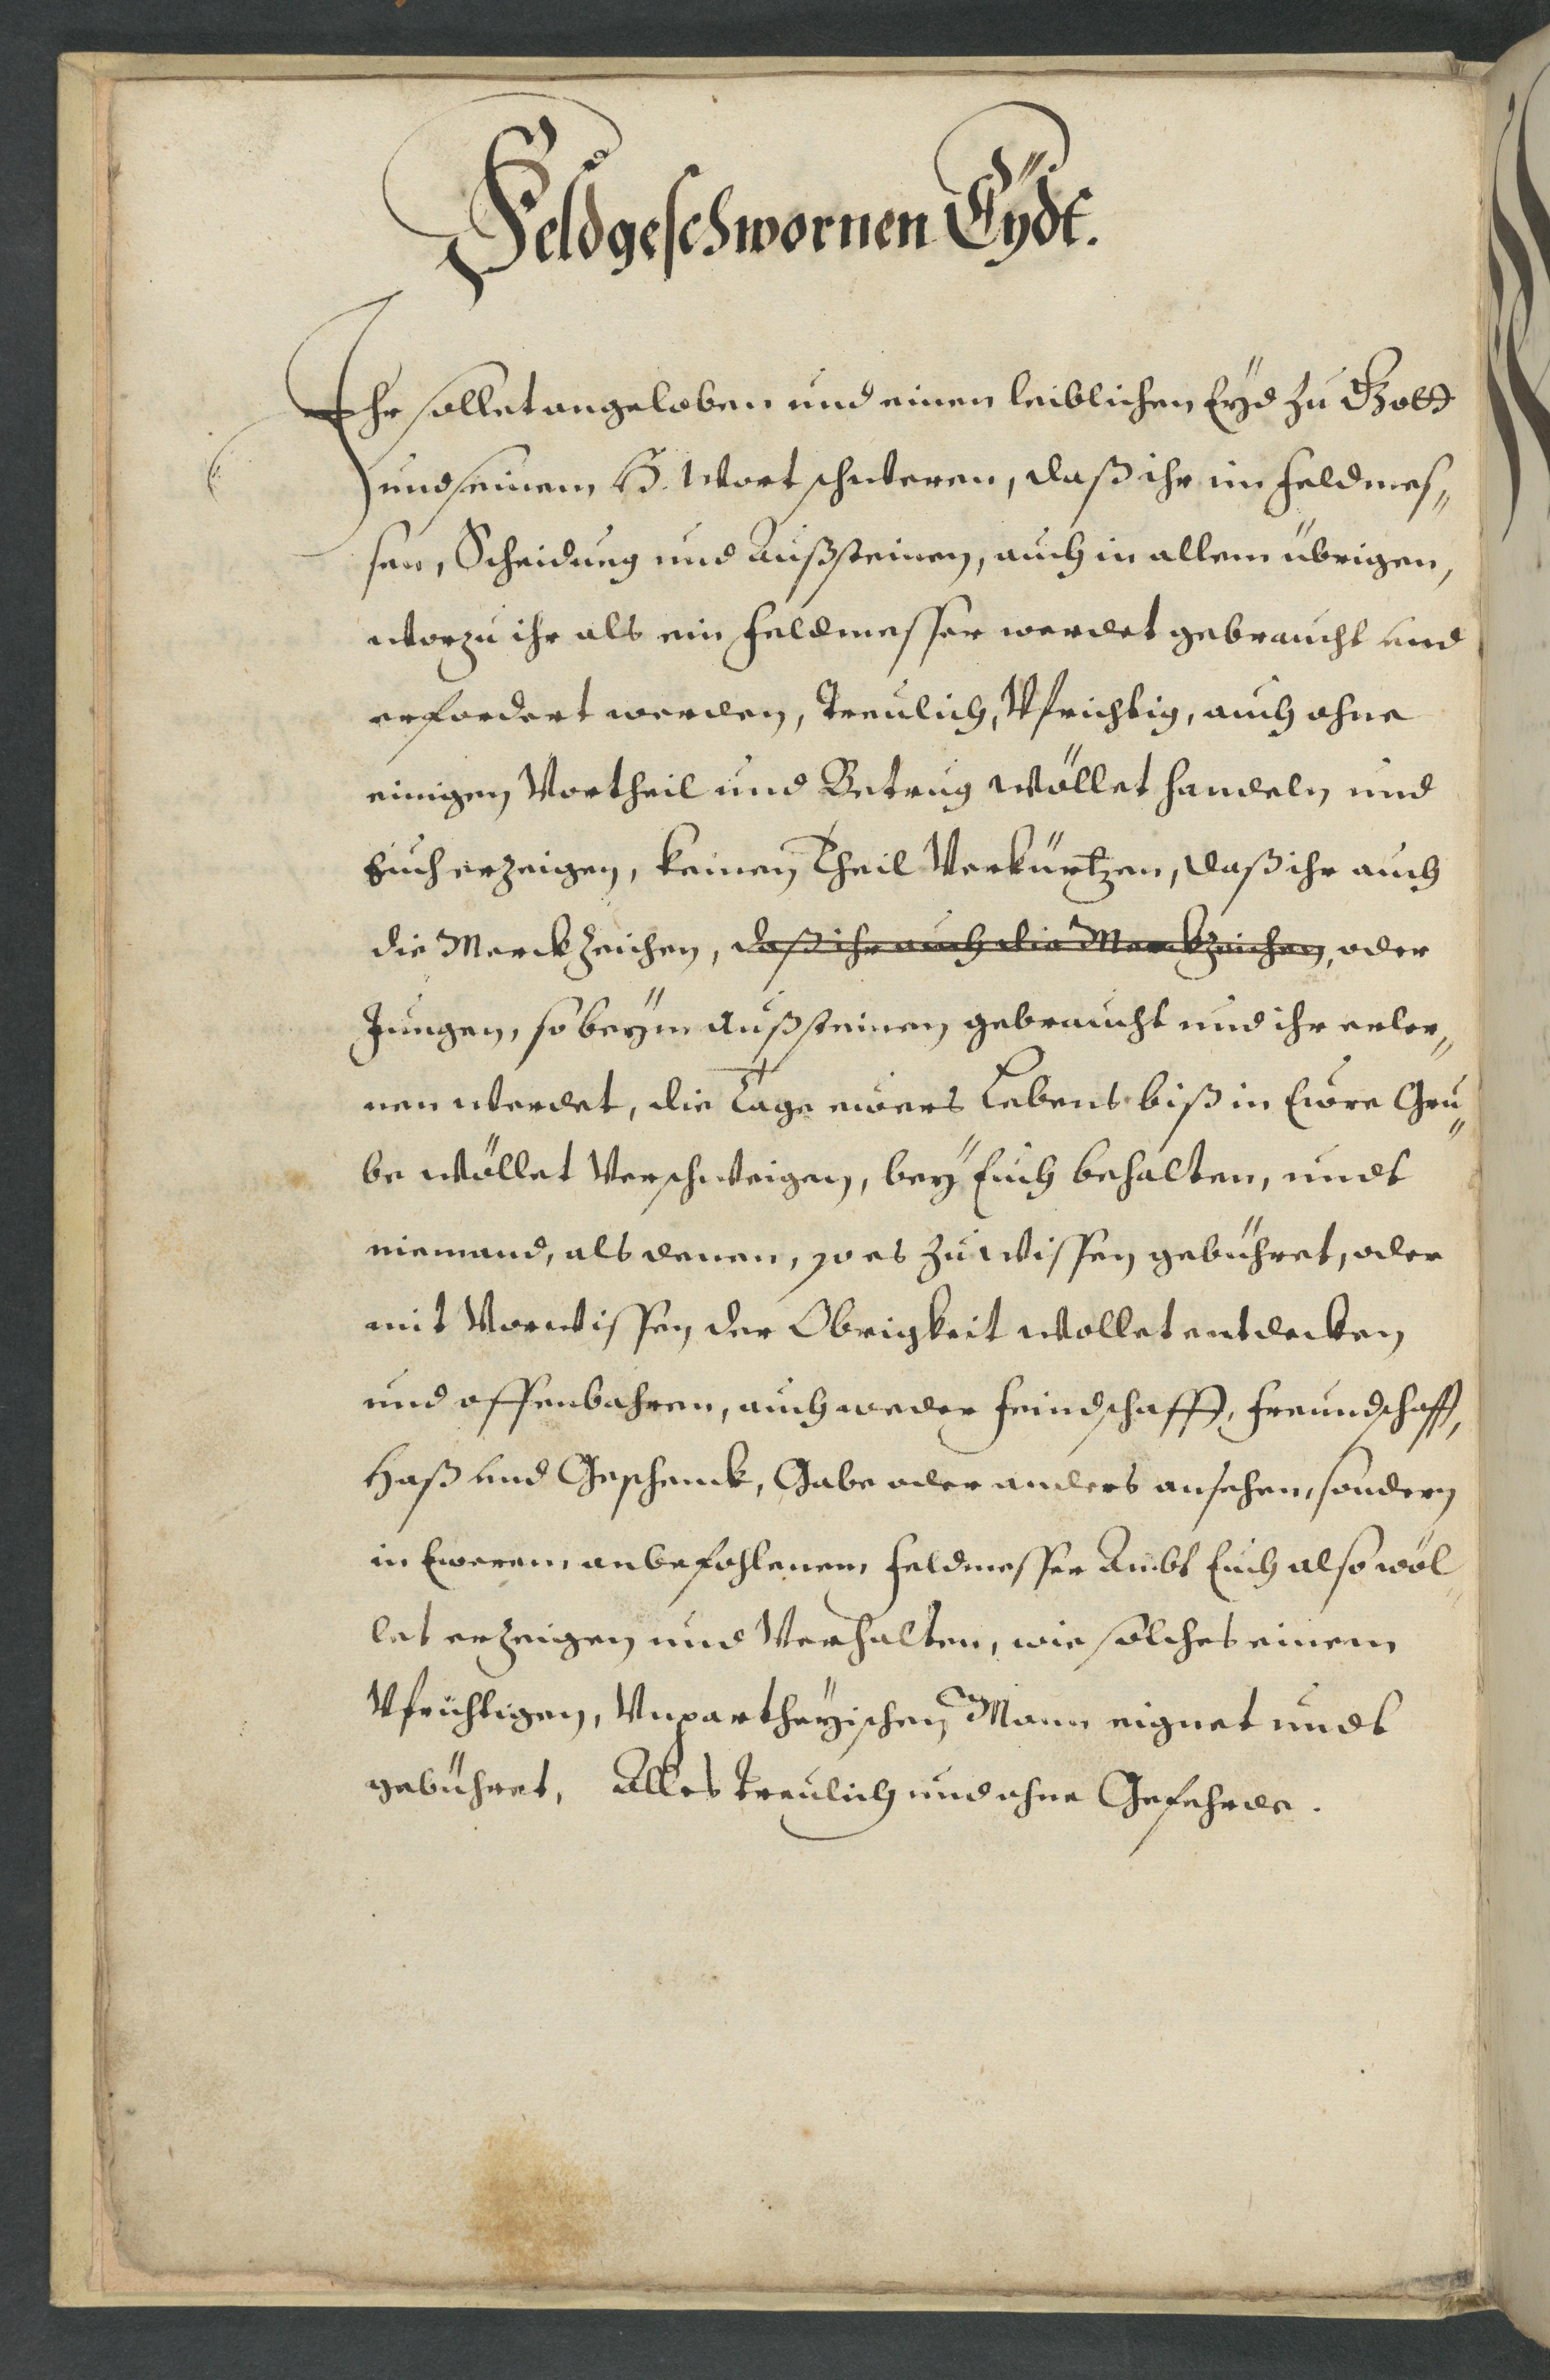 Feldgeschwornen Eÿdt.
Ihr sollet angeloben und einen leiblichen Eÿd zu Gott
und seinem H. Wort schweren, daß ihr im Feldmes„
sen, Scheidung und Außsteinen, auch in allem übrigen,
worzu ihr als ein Feldmesser werdet gebraucht und
erfordert werden, Treulich, Vfrichtig, auch ohne
einigen Vortheil und Betrug wöllet handeln und
Euch erzeigen, keinen Theil Verkürtzen, daß ihr auch
die Merckzeichen, daß ihr auch die Merckzeichen, oder
Zeugen, so beÿm Außsteinen gebraucht und ihr erler„
nen werdet, die Tage ewers Lebens biß in Ewre Gru„
be wöllet Verschweigen, beÿ Euch behalten, undt
niemand, als denen, so es zu wissen gebühret, oder
mit Vorwissen der Obrigkeit wollet entdecken
und offenbahren, auch weder Feindschafft, Freundschafft,
Haß und Geschenck, Gabe oder anders ansehen, sondern
in Ewerem anbefohlenem Feldmesser Ambt Euch also wöl„
let erzeigen und Verhalten, wie solches einem
Vfrichtigen, Vnpartheÿischen Mann eignet undt
gebühret, Alles treulich und ohne Gefehrde.